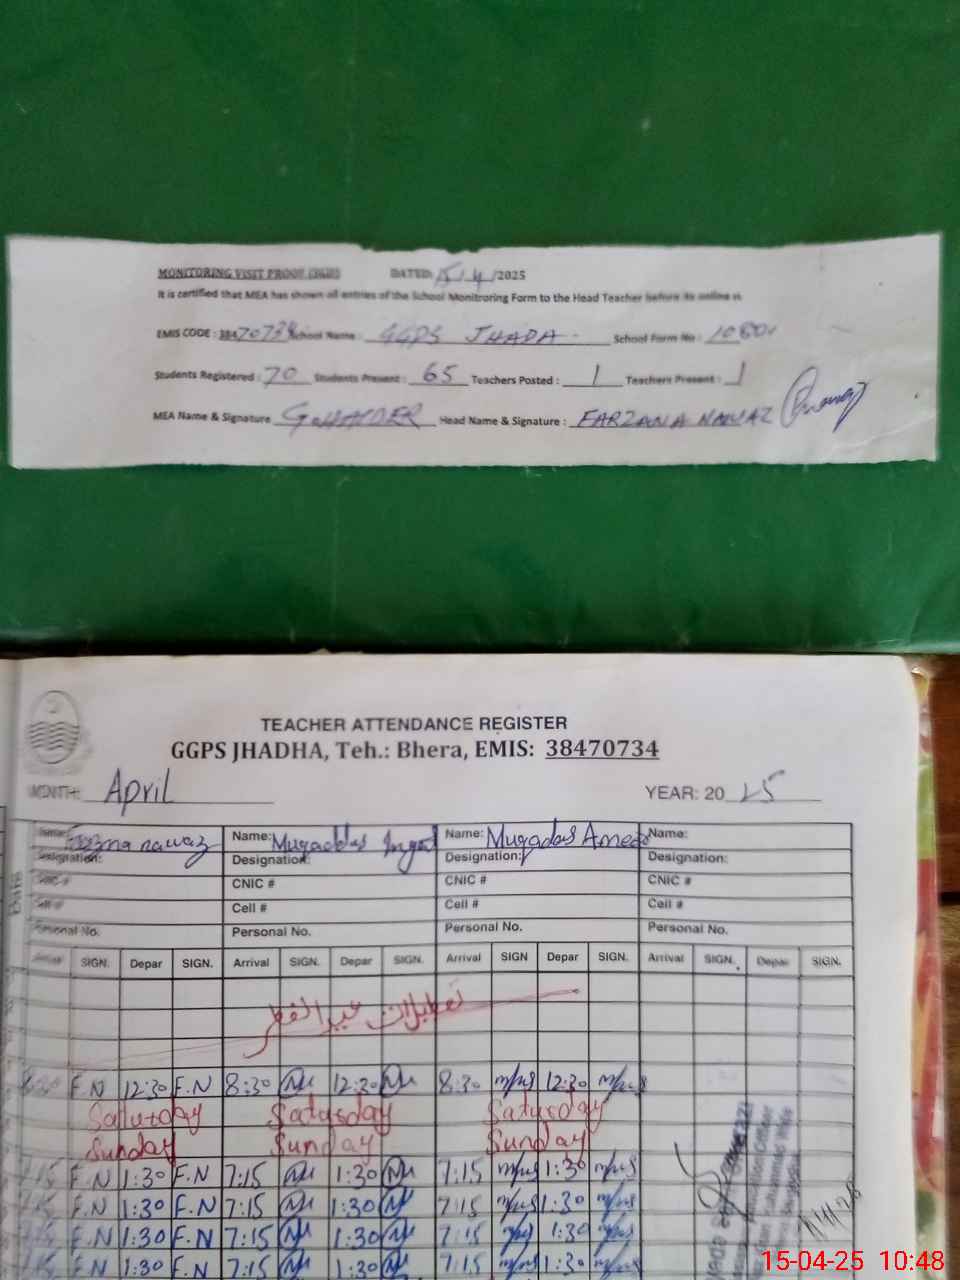 MONITORING VISIT PROOF DATED: 15/4/2025
It is certified that MEA has shown all entries of the School Monitroring Form to the Head Teacher before its online
EMIS CODE : 38470734 School Name : GGPS JHADA. School Form No :
Students Registered : 70 Students Present : 65 Teachers Posted : 1 Teachers Present : 1
MEA Name & Signature G. HAIDER Head Name & Signature : FARZANA NAWAZ
TEACHER ATTENDANCE REGISTER
GGPS JHADHA, Teh.: Bhera, EMIS: 38470734
MONTH: April YEAR: 2025
Name: Farzna nawaz Name: Muqaddas Name: Muqadas Name:
Designation: Designation: Designation: Designation:
CNIC # CNIC # CNIC # CNIC #
Cell # Cell # Cell # Cell #
Personal No. Personal No. Personal No. Personal No.
Arrival SIGN. Depar SIGN. Arrival SIGN. Depar SIGN. Arrival SIGN Depar SIGN. Arrival SIGN. Depar SIGN.
تعطیلات عید الفطر
F.N 12:30 F.N 8:30 12:30 8:30 12:30
Saturday Saturday Saturday
Sunday Sunday Sunday
7:15 F.N 1:30 F.N 7:15 1:30 7:15 1:30
7:15 F.N 1:30 F.N 7:15 1:30 7:15 1:30
7:15 F.N 1:30 F.N 7:15 1:30 7:15 1:30
7:15 F.N 1:30 F.N 7:15 1:30 7:15 1:30
15-04-25 10:48